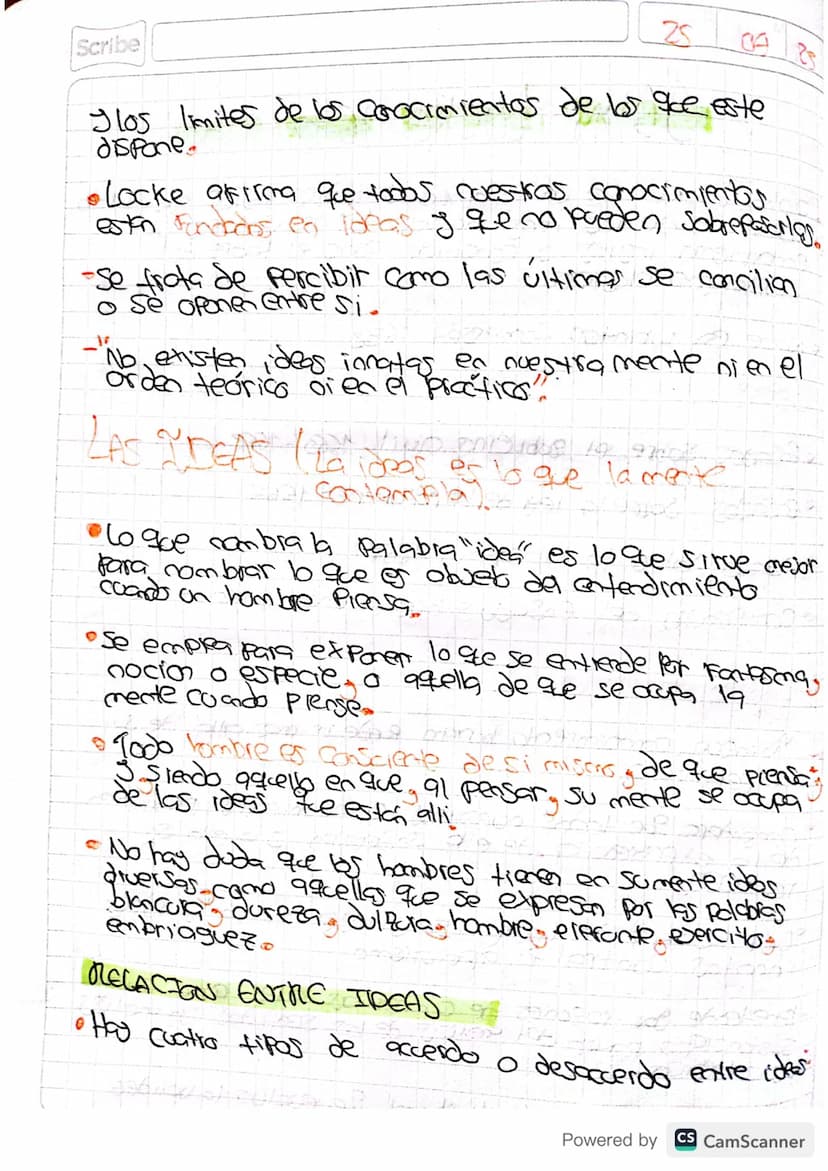 Scribe
25 04 25
y los limites de los conocimientos de los que este
dispone.
• Locke afirma que todos nuestros conocimientos
estan fundados en ideas y que no pueden sobrepasarlas.
- Se trata de percibir como las últimas se concilian
o se oponen entre si.
- "No existen ideas innatas en nuestra mente ni en el
orden teórico ni en el práctico".
LAS IDEAS (La ideas es lo que la mente
contempla).
• Lo que nombra la palabra "idea" es lo que sirve mejor
para nombrar lo que es objeto del entendimiento
cuando un hombre piensa.
• Se emplea para exponer lo que se entiende por fantasma,
nocion o especie, o aquella de que se ocupa la
mente cuando piense.
• Todo hombre es consciente de si mismo, de que piensa;
y siendo aquello en que, al pensar, su mente se ocupa
de las ideas que están alli.
• No hay duda que los hombres tienen en su mente ideas
diversas, como aquellas que se expresan por las palabras
blancura, dureza, dulzura, hombre, elefante, ejercito,
embriaguez.
RELACION ENTRE IDEAS
• Hay cuatro tipos de acuerdo o desacuerdo entre ideas
Powered by CS CamScanner